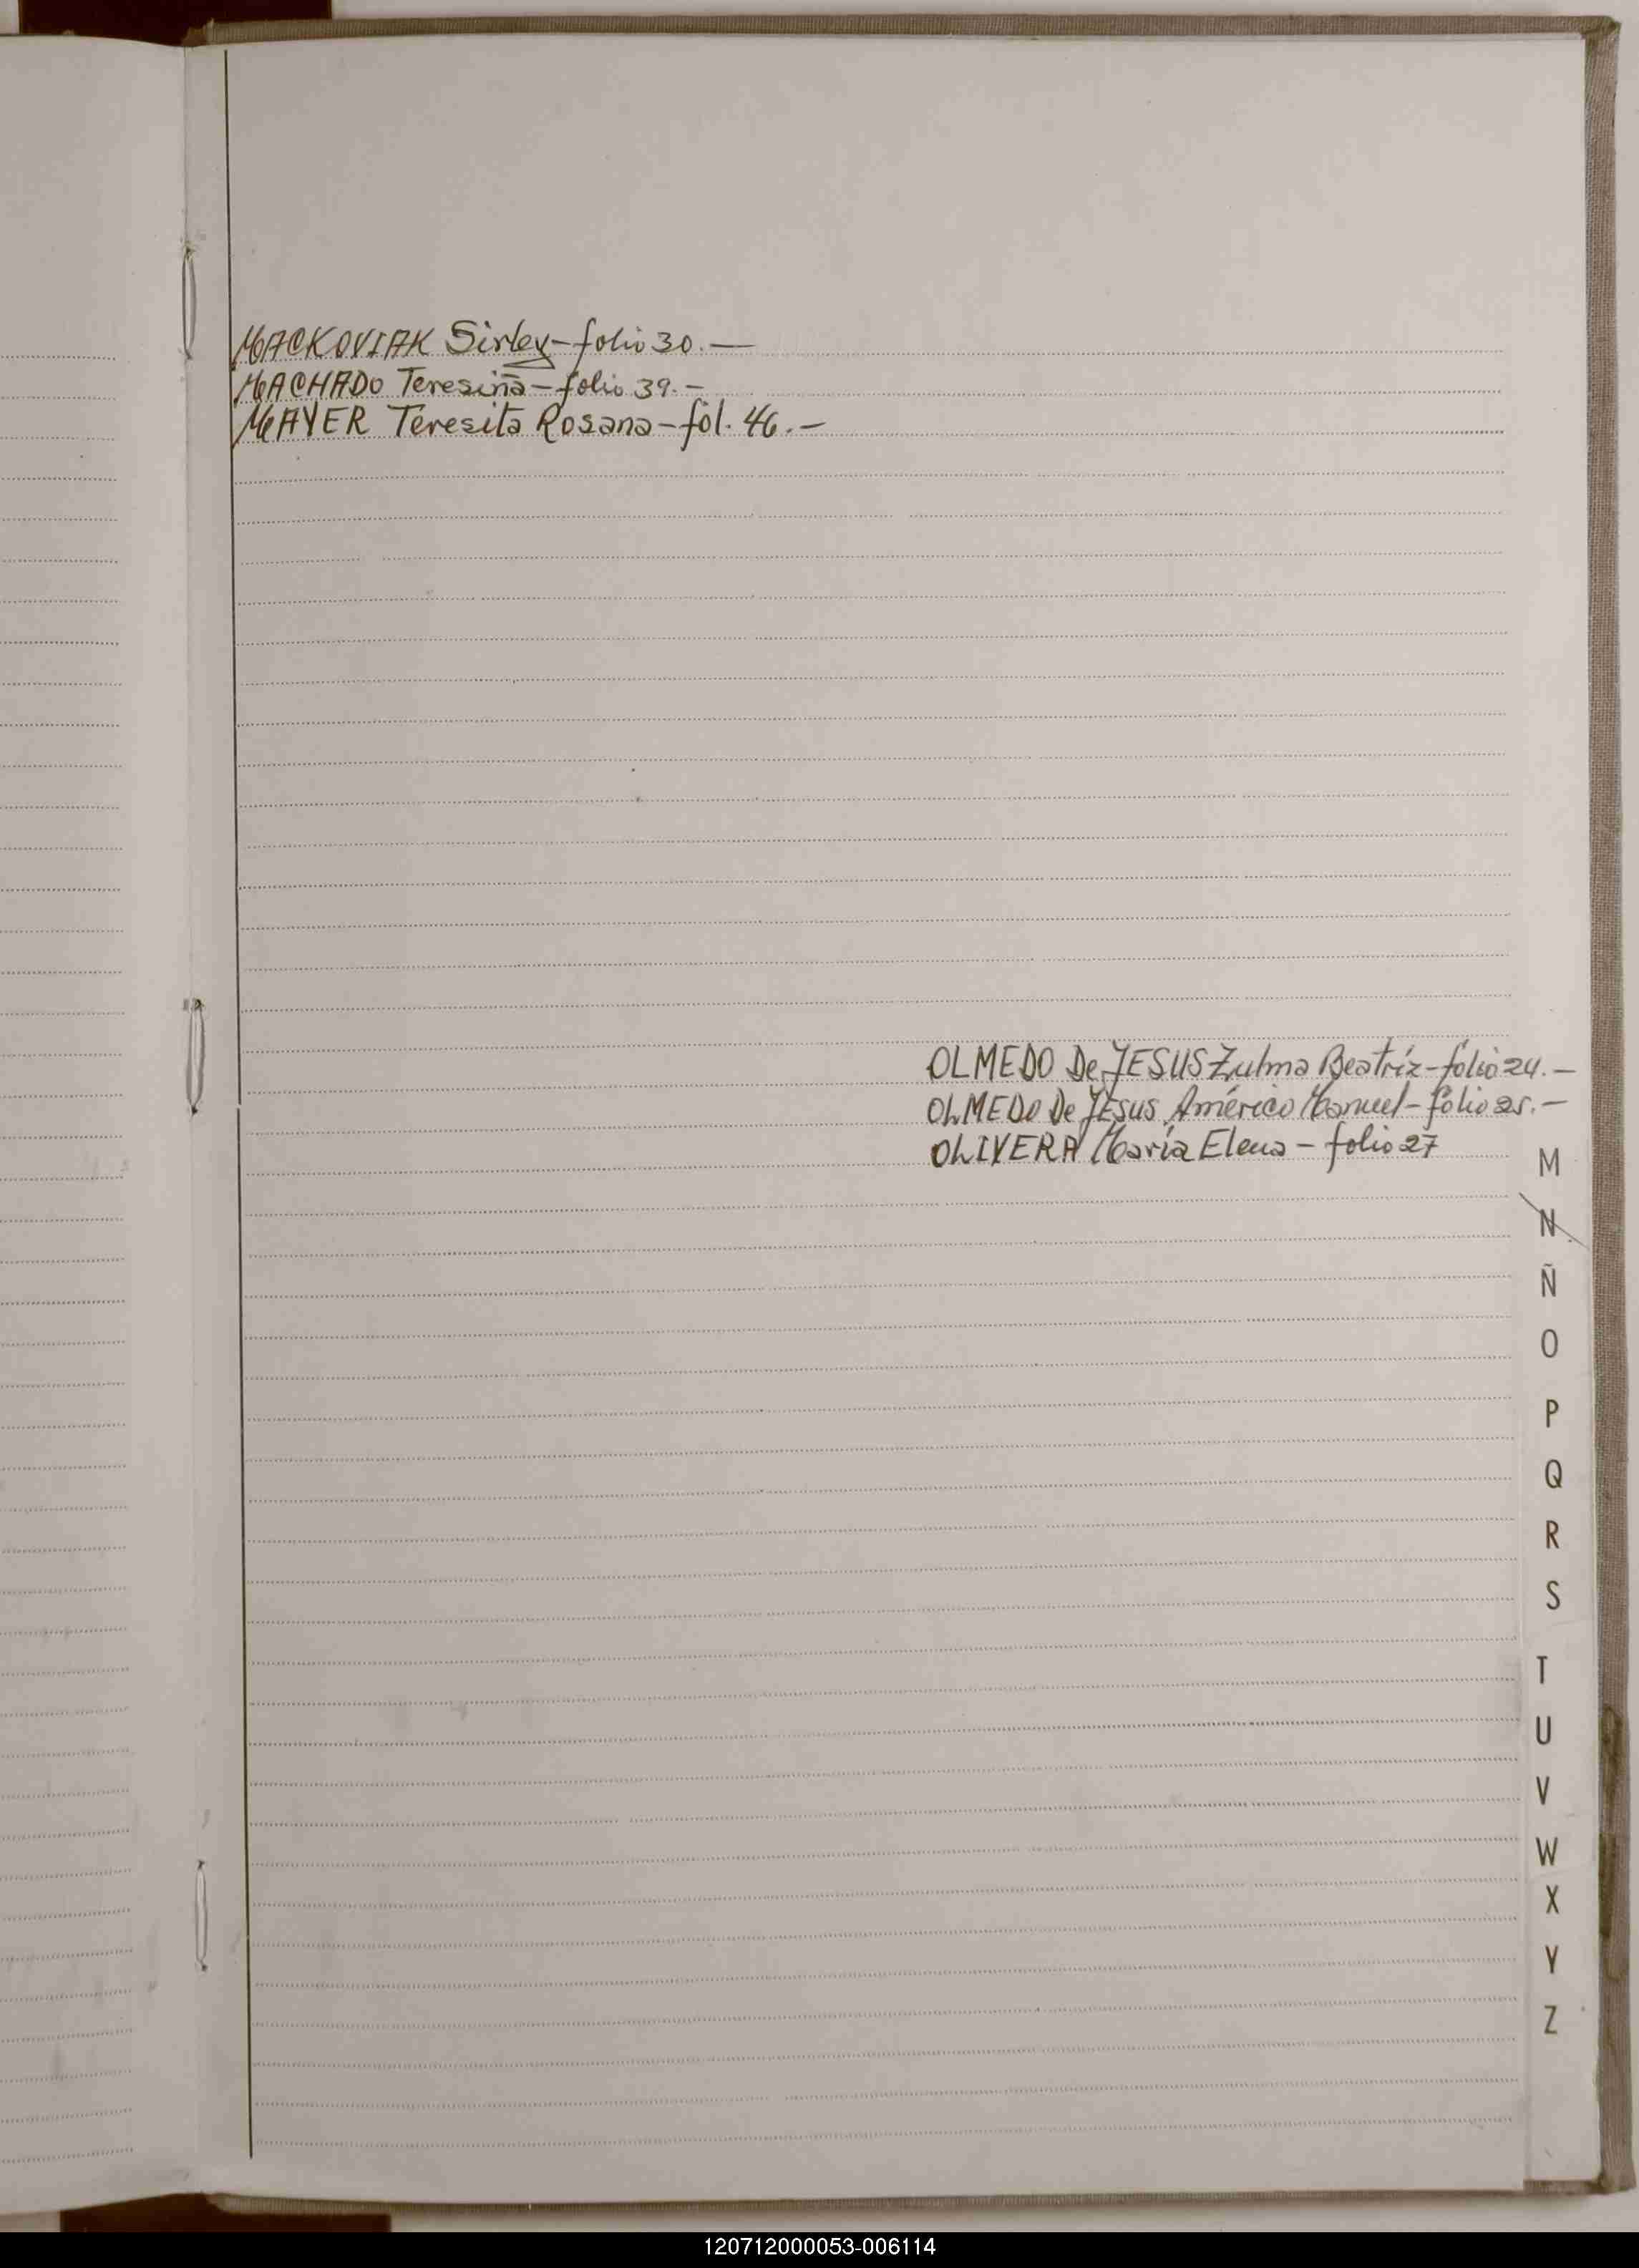 MACKOVIAK Sirley - folio 30.—
MACHADO Teresiña - folio 39.-
MAYER Teresita Rosana - fol. 46.-
OLMEDO De JESUS Zulma Beatríz - folio 24.—
OLMEDO De JEsus Américo Manuel - folio 25.—
OLIVERA María Elena - folio 27
M
N
Ñ
O
P
Q
R
S
T
U
V
W
X
Y
Z
120712000053-006114